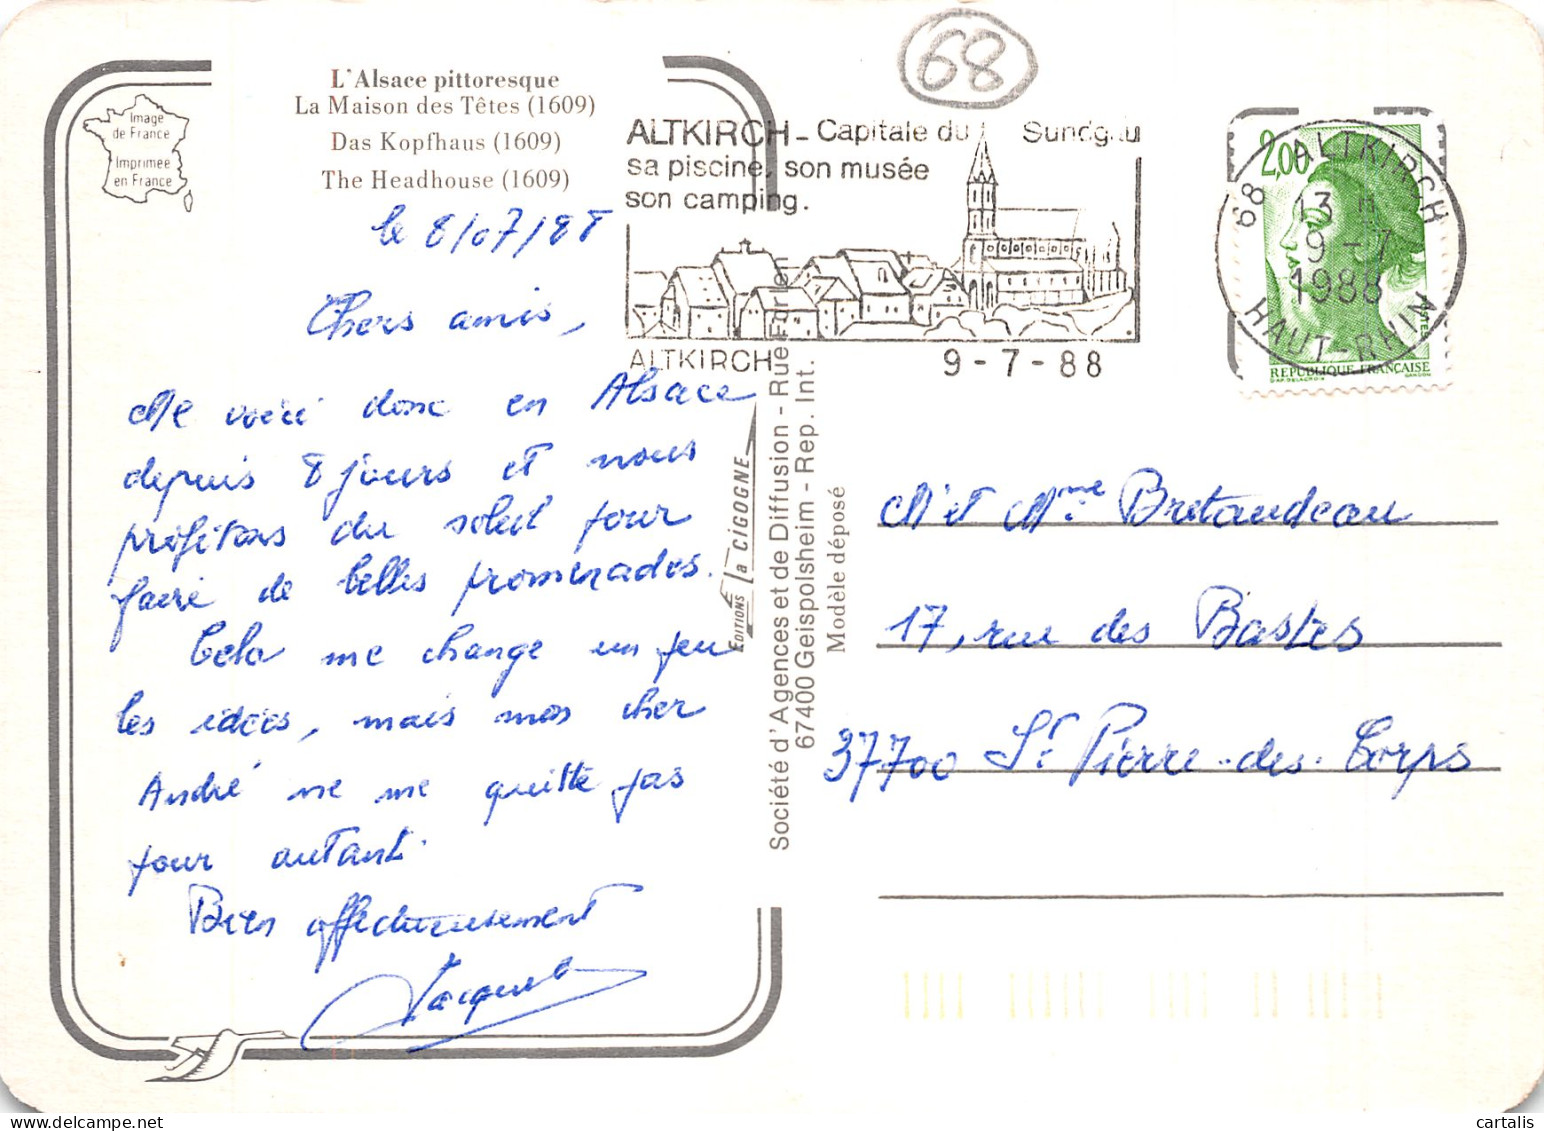 68
L'Alsace pittoresque
La Maison des Têtes (1609)
Das Kopfhaus (1609)
The Headhouse (1609)
Image
de France
Imprimée
en France
ALTKIRCH - Capitale du Sundgau
sa piscine, son musée
son camping.
ALTKIRCH 9-7-88
68 ALTKIRCH
13 H
9-7
1988
HAUT-RHIN
2,00
POSTES
REPUBLIQUE FRANÇAISE
D'AP. DELACROIX GANDON
le 8/07/88
Chers amis,
Me voici donc en Alsace
depuis 8 jours et nous
profitons du soleil pour
faire de belles promenades.
Cela me change un peu
les idées, mais mon cher
André ne me quitte pas
pour autant.
Bien affectueusement
EDITIONS La CIGOGNE
Société d'Agences et de Diffusion - Rue
67400 Geispolsheim - Rep. Int.
Modèle déposé
Mr et Mme Bretaudeau
17, rue des Bastes
37700 St Pierre-des-Corps
cartalis